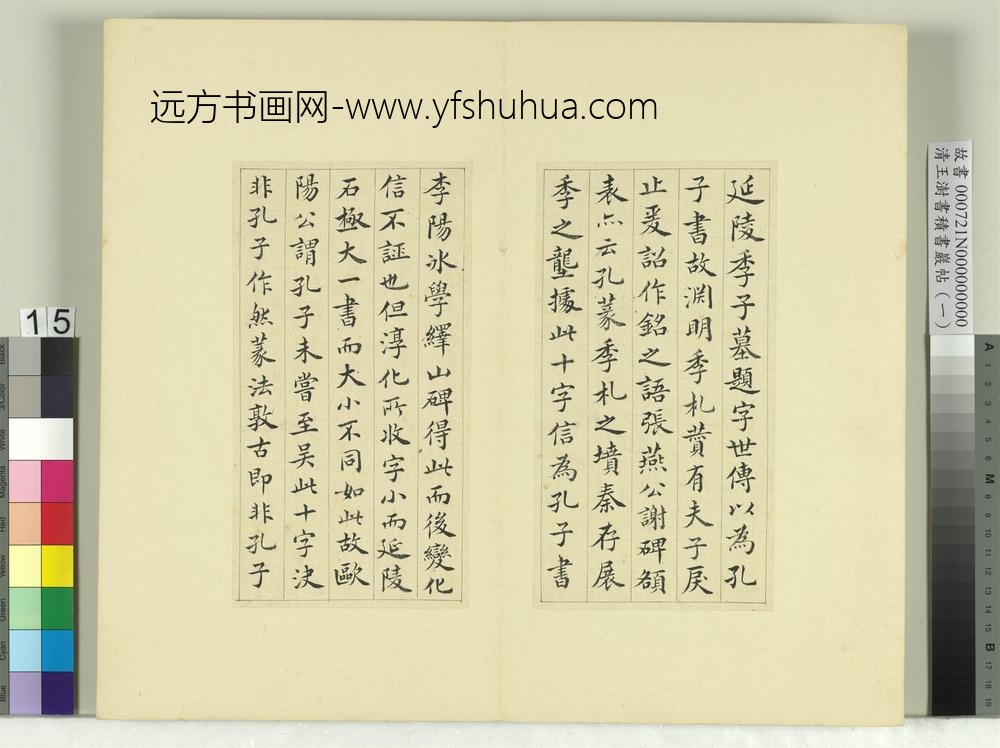 远方书画网-www.yfshuhua.com
延陵季子墓題字世傳以為孔
子書故淵明季札贊有夫子戾
止爰詔作銘之語張燕公謝碑額
表亦云孔篆季札之墳秦存展
季之壟據此十字信為孔子書
李陽冰學繹山碑得此而後變化
信不誣也但淳化所收字小而延陵
石極大一書而大小不同如此故歐
陽公謂孔子未嘗至吴此十字決
非孔子作然篆法敦古即非孔子
故書 000721N000000000
清王澍書積書巖帖(一)
15
A
1
2
3
4
5
6
M
8
9
10
11
12
13
14
15
B
17
18
19
Black
3/Color
White
Magenta
Red
Yellow
Green
Cyan
Blue